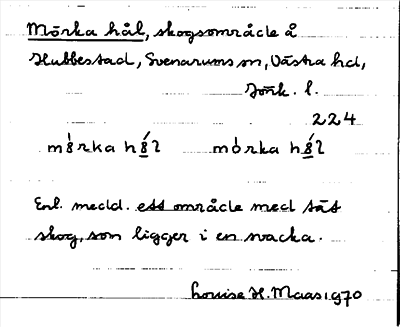 Mörka hål, skogsområde å
Hubbestad, Svenarums sn, Västra hd,
Jönk. l.
224
Enl. medd. ett område med tät
skog, som ligger i en svacka.
Louise H. Maas 1970